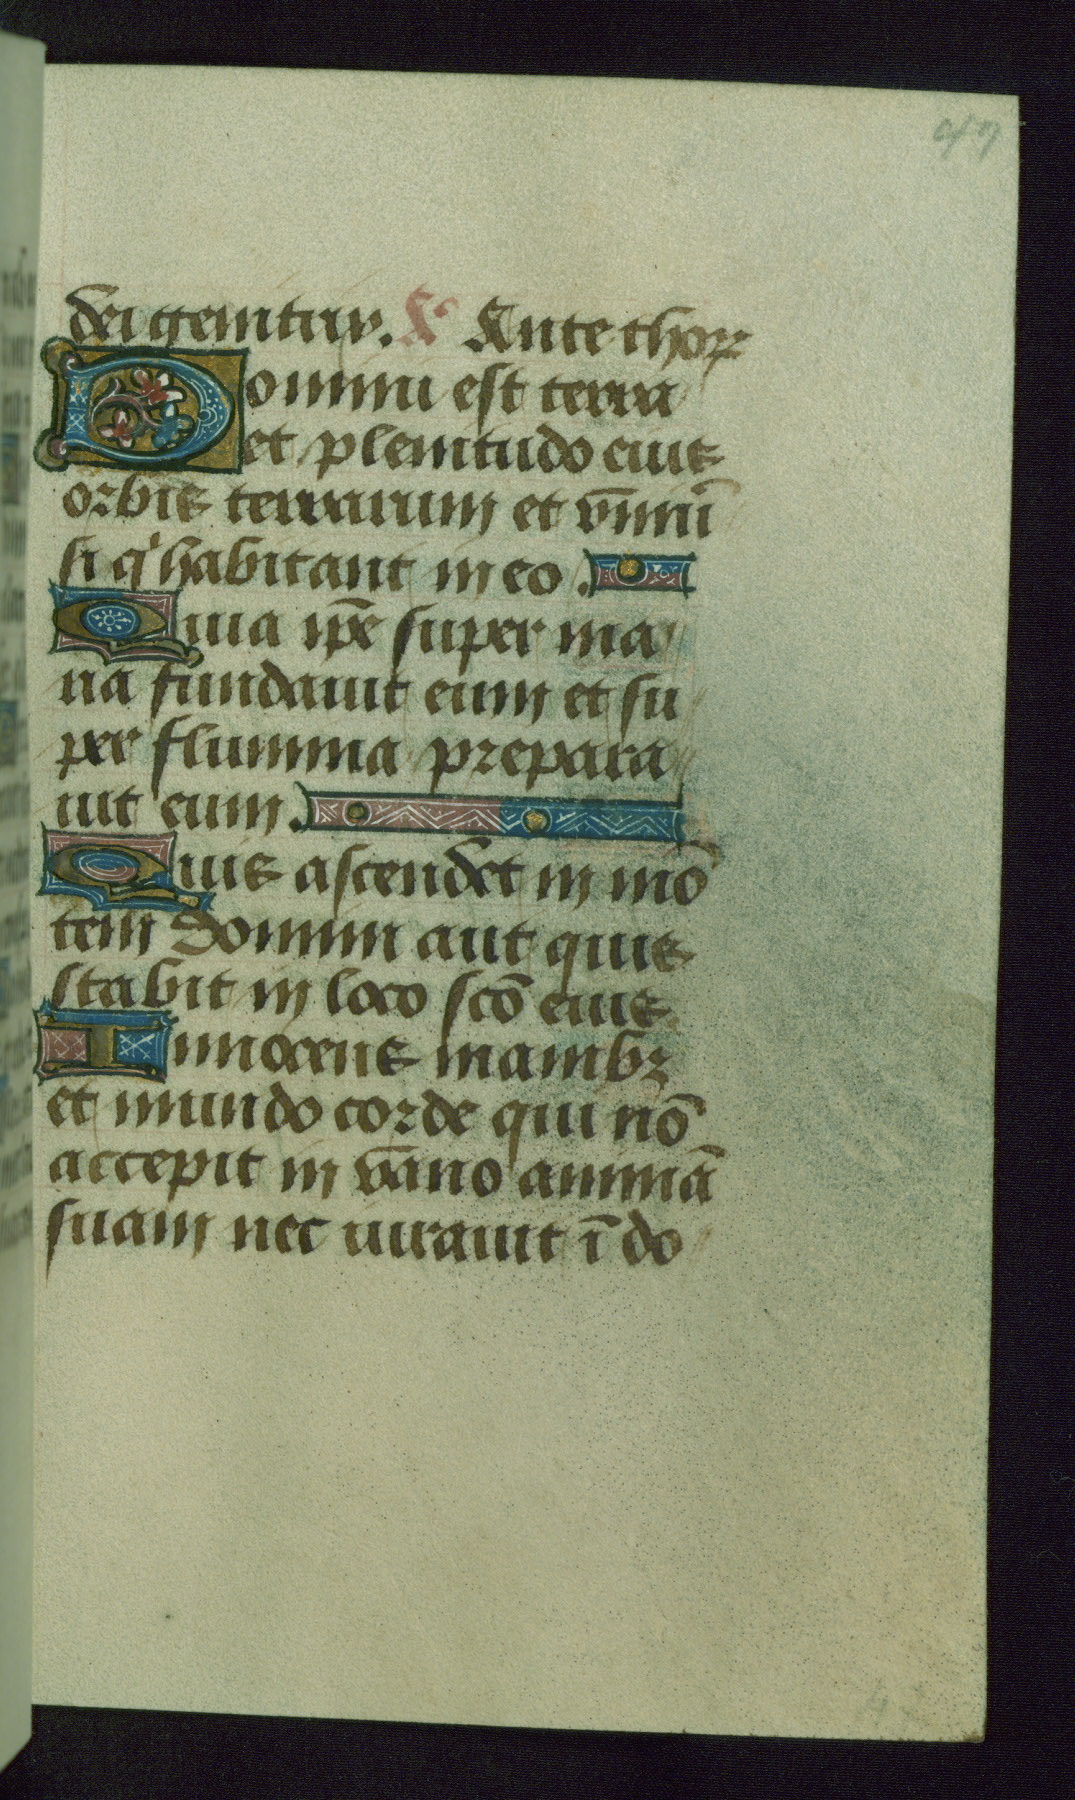 47
dei genitrix. A Ante thoꝝ
Domini est terra
et plenitudo eius
orbis terrarum et vniu̅
si q habitant in eo.
Quia ip̅e super ma
ria fundauit eum et su
per flumina prepara
uit eum.
Quis ascendet in mo̅
tem domini aut quis
stabit in loco sc̅o eius
Innocens manibꝫ
et mundo corde qui no̅
accepit in vano anima̅
suam nec iurauit i̅ do